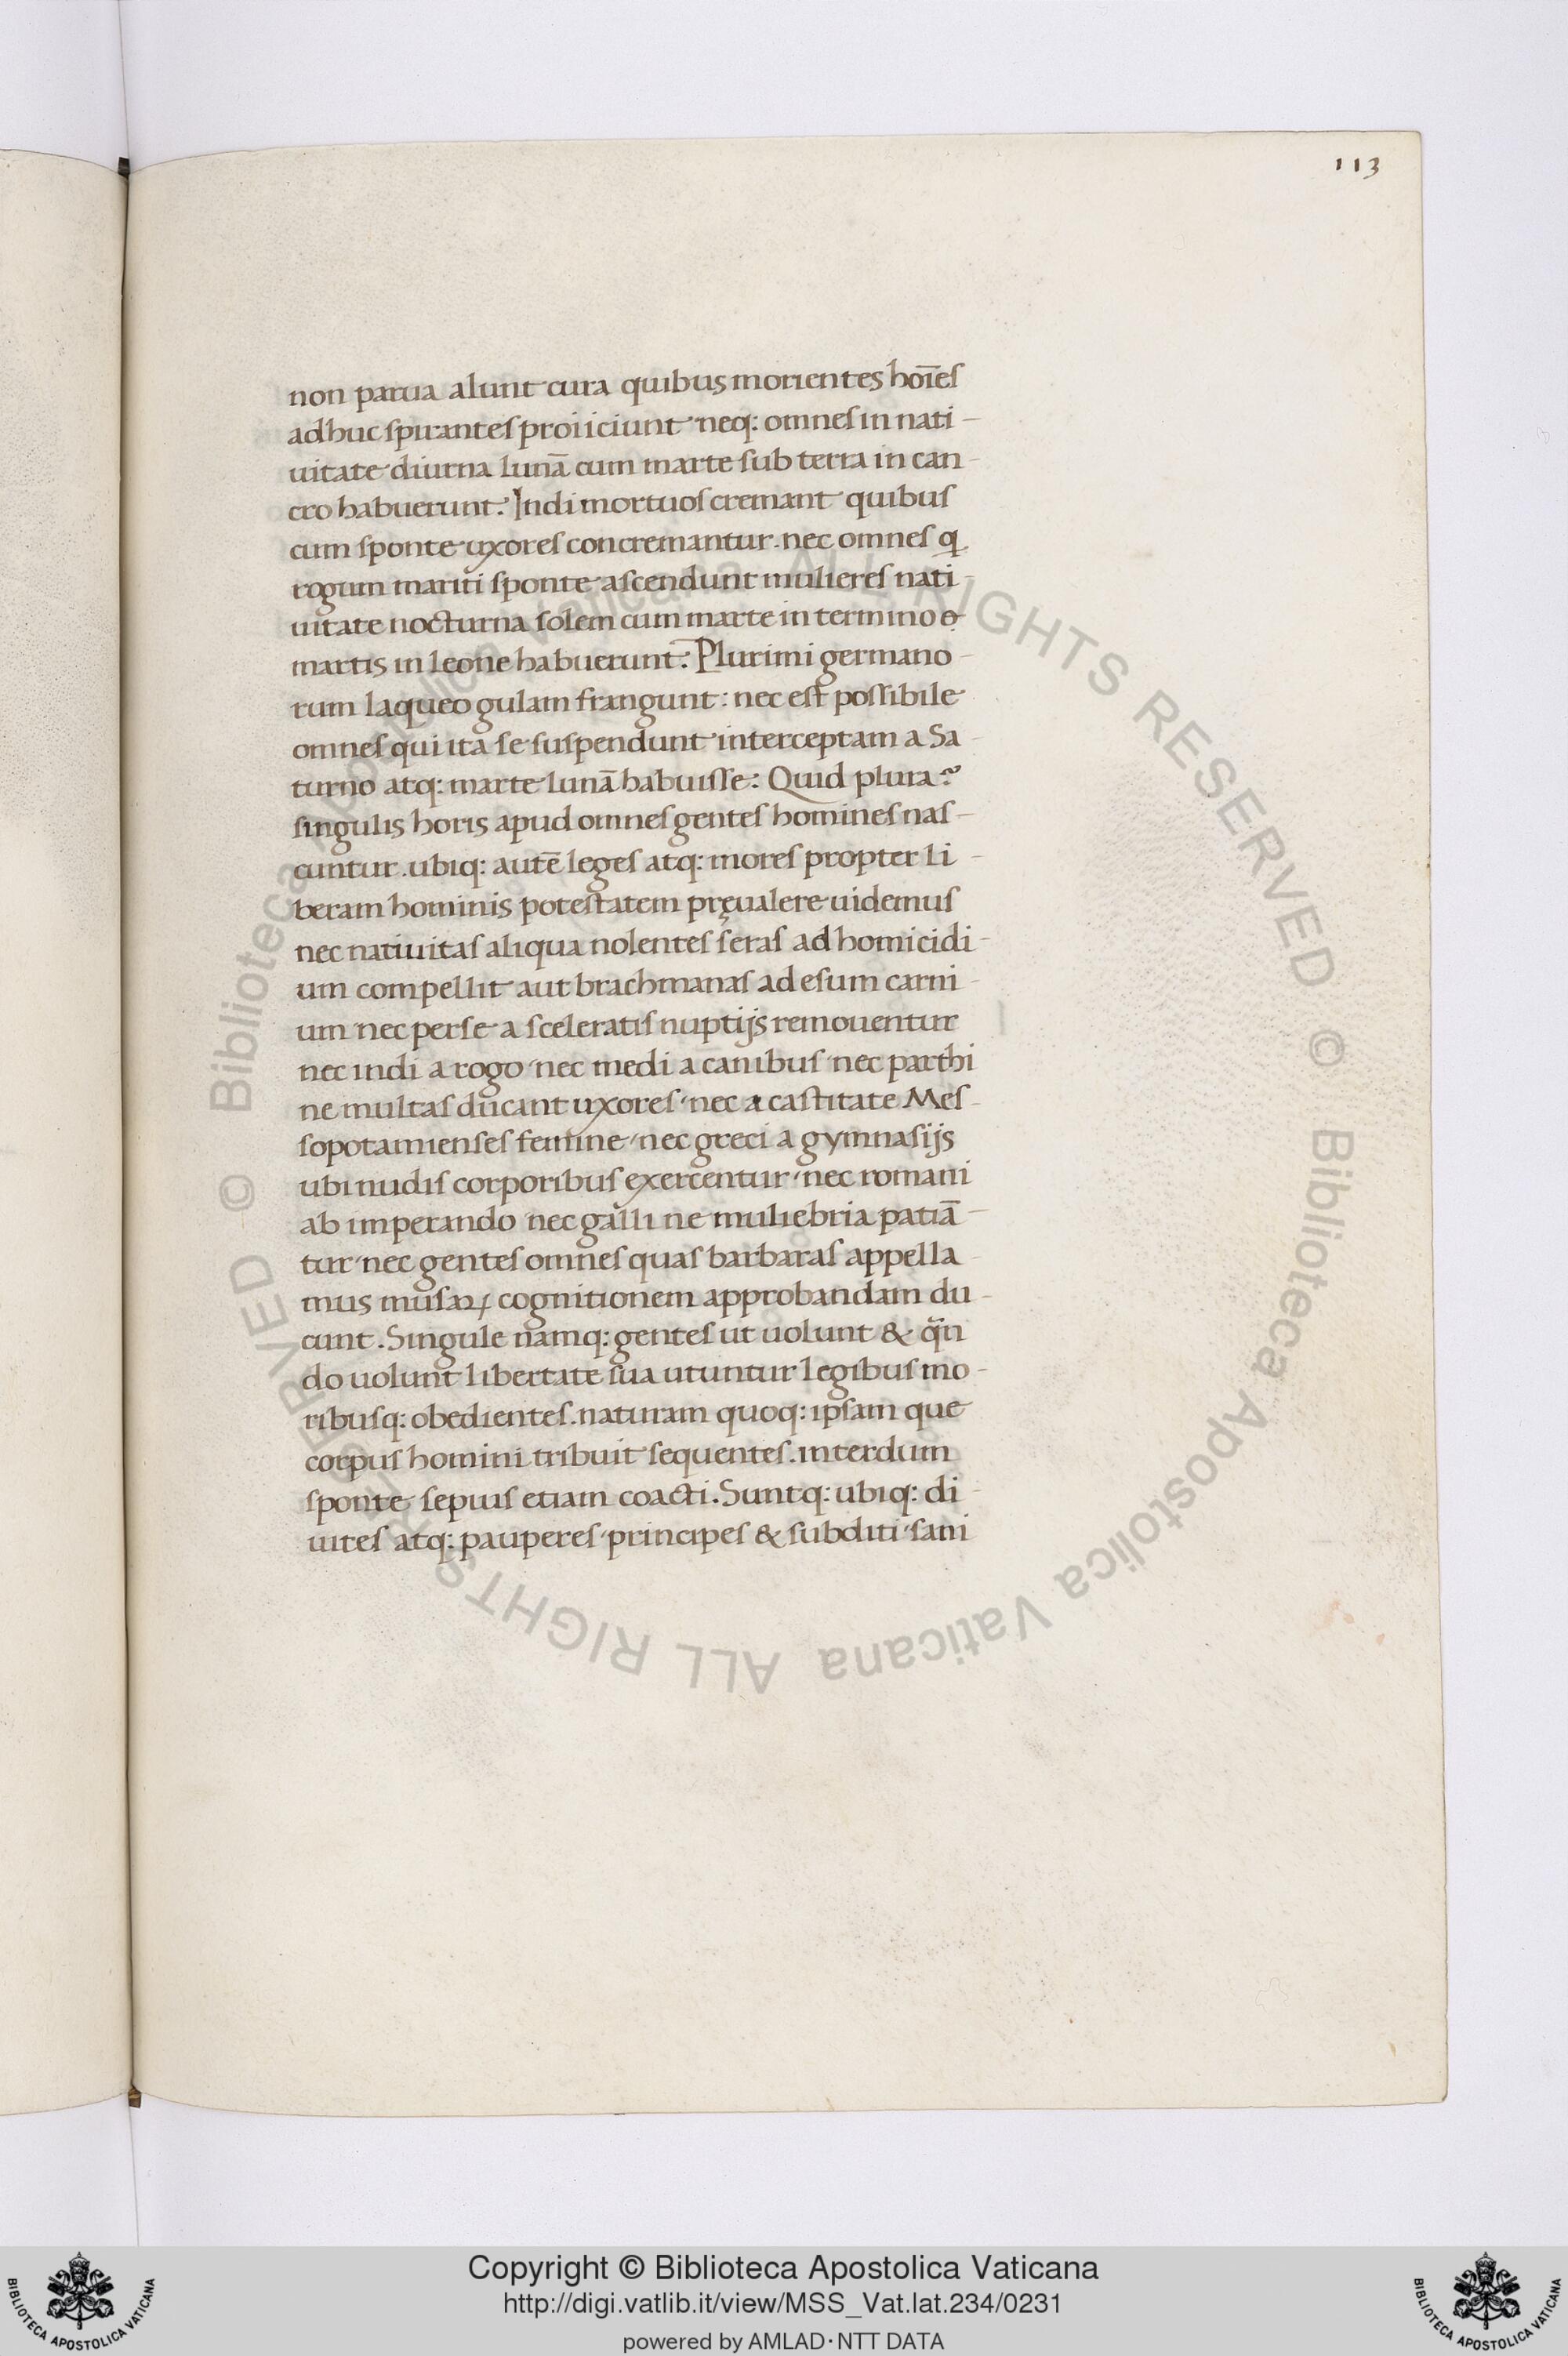 113
non parua alunt cura quibus morientes hoı̅es
adhuc spirantes proiiciunt neq: omnes in nati-
uitate diurna lunā cum marte sub terra in can-
cro habuerunt. Indi mortuos cremant quibus
cum sponte uxores concremantur. nec omnes q
rogum mariti sponte ascendunt mulieres nati-
uitate nocturna solem cum marte in termino
martis in leone habuerunt. Plurimi germano-
rum laqueo gulam frangunt: nec est possibile
omnes qui ita se suspendunt interceptam a Sa-
turno atq: marte lunā habuisse: Quid plura?
singulis horis apud omnes gentes homines nas-
cuntur. ubiq: autē leges atq: mores propter li-
beram hominis potestatem pręualere uidemus
nec natiuitas aliqua nolentes seras ad homicidi-
um compellit aut brachmanas ad esum carni-
um nec perse a sceleratis nuptijs remouentur
nec indi a rogo nec medi a canibus nec parthi
ne multas ducant uxores nec a castitate Mes-
sopotamienses femine nec greci a gymnasijs
ubi nudis corporibus exercentur nec romani
ab imperando nec galli ne muliebria patiā-
tur nec gentes omnes quas barbaras appella-
mus musaꝝ cognitionem approbandam du-
cunt. Singule namq: gentes ut uolunt & qn̄
do uolunt libertate sua utuntur legibus mo-
ribusq: obedientes. naturam quoq: ipsam que
corpus homini tribuit sequentes. interdum
sponte sepius etiam coacti. Suntq: ubiq: di-
uites atq: pauperes principes & subditi sani
© Biblioteca Apostolica Vaticana ALL RIGHTS RESERVED © Biblioteca Apostolica Vaticana ALL RIGHTS RESERVED
Copyright © Biblioteca Apostolica Vaticana
http://digi.vatlib.it/view/MSS_Vat.lat.234/0231
powered by AMLAD·NTT DATA
BIBLIOTECA APOSTOLICA VATICANA
BIBLIOTECA APOSTOLICA VATICANA